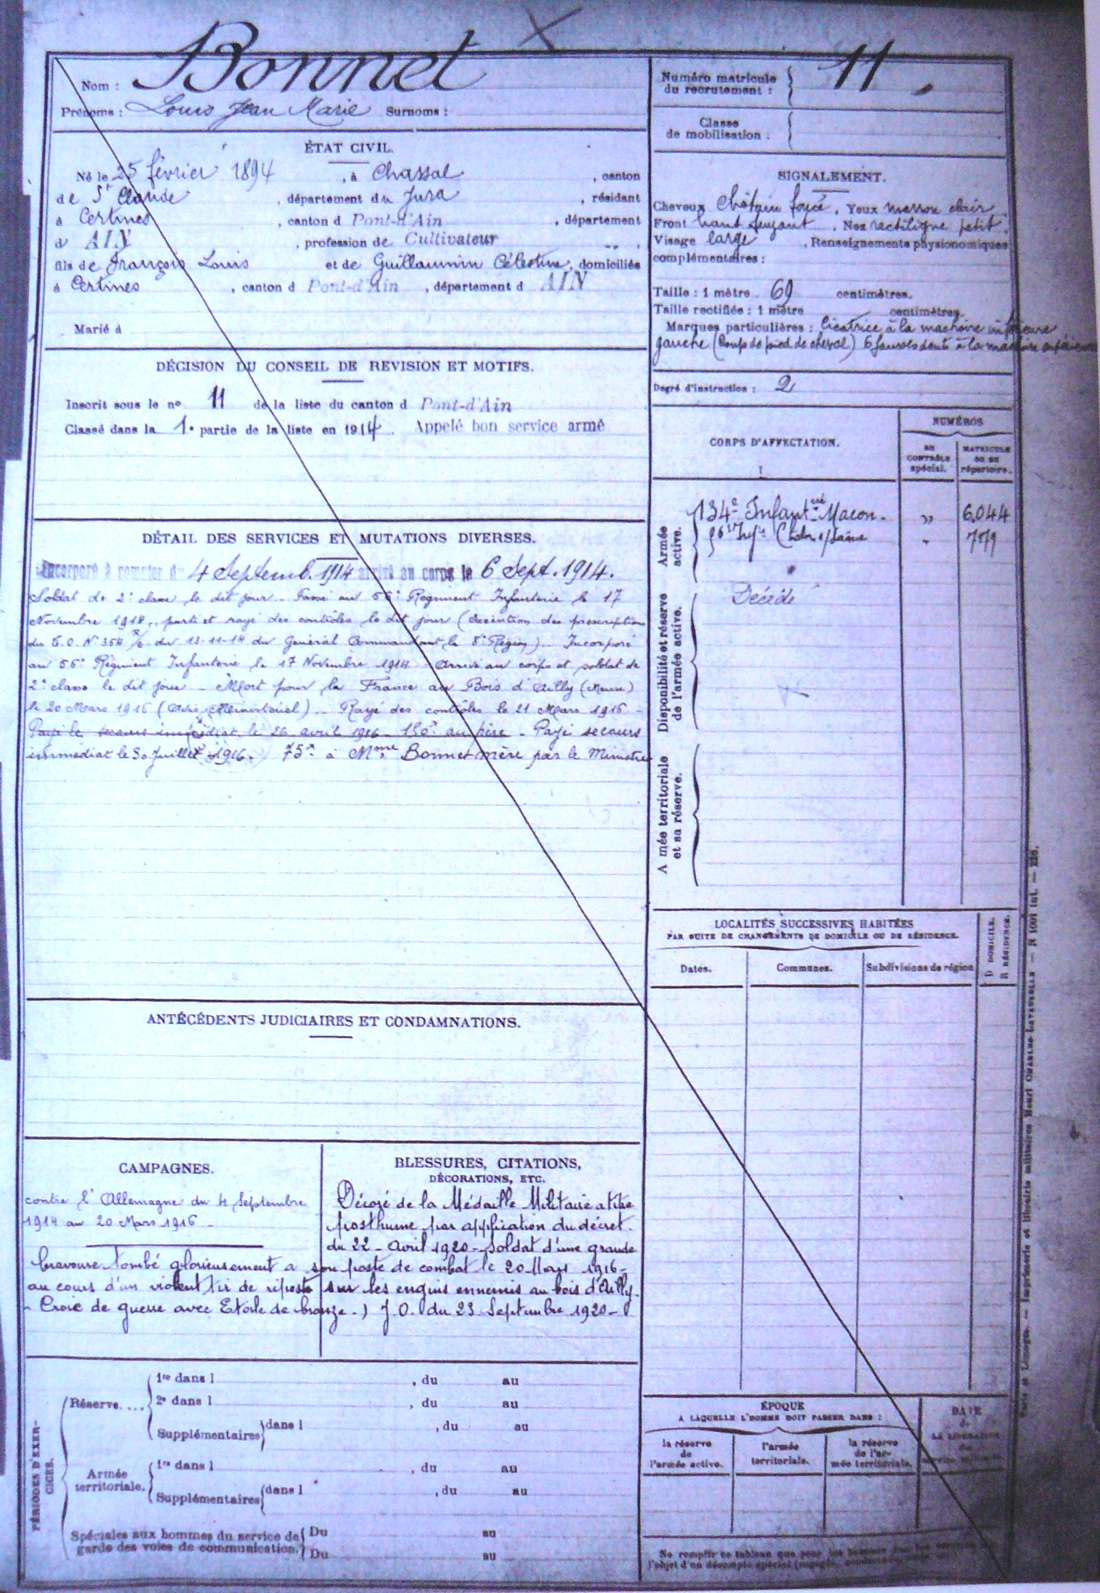 Nom : Bonnet
Prénoms : Louis Jean Marie Surnoms :
ÉTAT CIVIL.
Né le 25 février 1894, à Chassal, canton
de St Claude, département du Jura, résidant
à Certines, canton d Pont-d'Ain, département
d AIN, profession de Cultivateur
fils de François Louis et de Guillaumin Célestine, domiciliés
à Certines, canton d Pont-d'Ain, département d AIN
Marié à
DÉCISION DU CONSEIL DE REVISION ET MOTIFS.
Inscrit sous le no 11 de la liste du canton d Pont-d'Ain
Classé dans la 1e partie de la liste en 1914. Appelé bon service armé
DÉTAIL DES SERVICES ET MUTATIONS DIVERSES.
Incorporé à compter du 4 Septemb. 1914 arrivé au corps le 6 Sept. 1914.
Soldat de 2e classe le dit jour. Passé au 56e Regiment Infanterie le 17
Novembre 1914, parti et rayé des contrôles le dit jour (exécution des prescriptions
du du 13-11-14 du Général Commandant le 8e Région). Incorporé
au 56e Régiment Infanterie le 17 Novembre 1914. Arrivé au corps et soldat de
2e classe le dit jour. Mort pour la France au Bois d'Ailly (Meuse)
le 20 Mars 1916 (Avis Ministériel). Rayé des contrôles le 21 Mars 1916.
Payé le secours immédiat le 26 avril 1916 150f au père. Payé secours
immédiat le 30 Juillet 1916. 75f à Mme Bonnet mère par le Ministre
ANTÉCÉDENTS JUDICIAIRES ET CONDAMNATIONS.
CAMPAGNES.
contre l'Allemagne du 4 Septembre
1914 au 20 Mars 1916
BLESSURES, CITATIONS,
DÉCORATIONS, ETC.
Décoré de la Médaille Militaire a titre
posthume par application du décret
du 22 - Avril 1920 - Soldat d'une grande
bravoure tombé glorieusement a son poste de combat le 20 Mars 1916 -
au cours d'un violent tir de riposte sur les engins ennemis au bois d'Ailly.
- Croix de guerre avec Etoile de bronze -) J.O. du 23 Septembre 1920 -
PÉRIODES D'EXERCICES.
Réserve. ...
1re dans l , du au
2e dans l , du au
Supplémentaires dans l , du au
Armée territoriale.
1re dans l , du au
Supplémentaires dans l , du au
Spéciales aux hommes du service de garde des voies de communication.
Du au
Du au
Numéro matricule du recrutement : 11.
Classe de mobilisation :
SIGNALEMENT.
Cheveux Châtain foncé, Yeux marron clair
Front haut fuyant, Nez rectiligne petit
Visage large, Renseignements physionomiques
complémentaires :
Taille : 1 mètre 69 centimètres.
Taille rectifiée : 1 mètre centimètres.
Marques particulières : Cicatrice à la machoire inférieure
gauche (Coup de pied de cheval) 6 fausses dents à la machoire
Degré d'instruction : 2
CORPS D'AFFECTATION.
NUMÉROS
AU CONTRÔLE spécial.
MATRICULE OU AU répertoire.
Armée active.
134e Infantrie Macon. " 6.044
56e Infie Chalon s/Saône " 779
Disponibilité et réserve de l'armée active.
Décédé
A mée territoriale et sa réserve.
LOCALITÉS SUCCESSIVES HABITÉES
PAR SUITE DE CHANGEMENTS DE DOMICILE OU DE RÉSIDENCE.
Dates. Communes. Subdivisions de région
D DOMICILE. R RÉSIDENCE.
ÉPOQUE
A LAQUELLE L'HOMME DOIT PASSER DANS :
la réserve de l'armée active.
l'armée territoriale.
la réserve de l'armée territoriale.
DATE de LA LIBÉRATION du service militaire.
Ne remplir ce tableau que pour les hommes
l'objet d'un décompte spécial
Paris et Limoges. — Imprimerie et librairie militaires Henri CHARLES-LAVAUZELLE